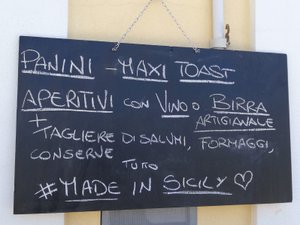 PANINI - MAXI TOAST
APERITIVI CON VINO O BIRRA
ARTIGIANALE
+
TAGLIERE DI SALUMI, FORMAGGI,
CONSERVE TUTTO
#MADE IN SICILY ♡